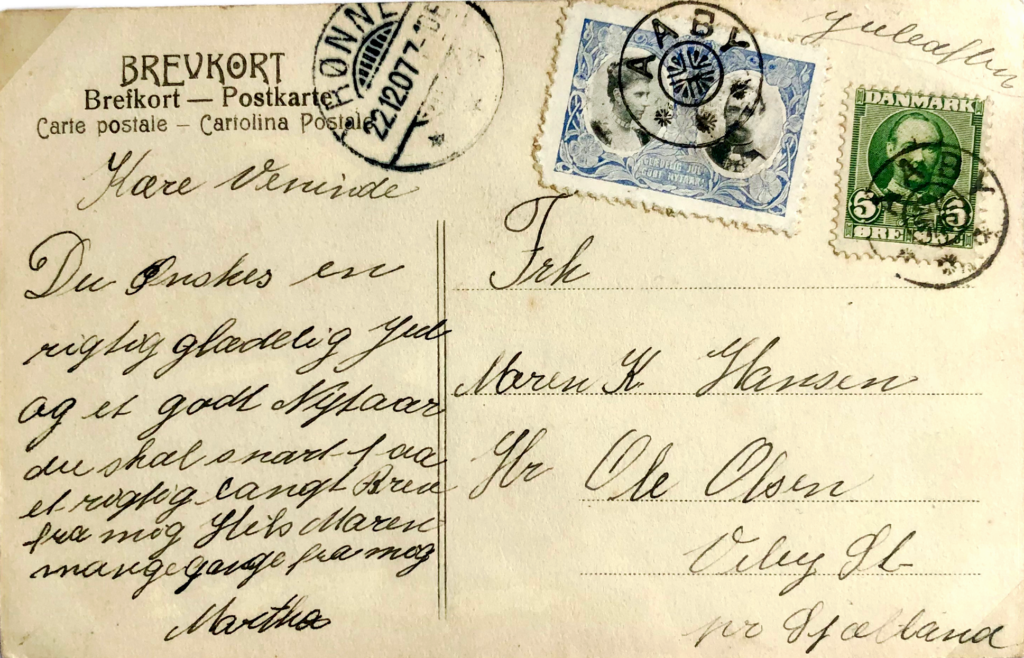 BREVKORT
Brefkort — Postkarte
Carte postale – Cartolina Postale
RØNNE
22.12.07 7-
AABY
JUL
1907
Juleaften
DANMARK
5 5
ØRE
AABY
Kære Veninde
Du ønskes en
rigtig glædelig Jul
og et godt Nytaar
du skal snart faa
et rigtig langt Brev
fra mig Hils Maren
mange gange fra mig
Martha
Frk
Maren K. Hansen
Hr Ole Olsen
Viby St
pr Sjælland